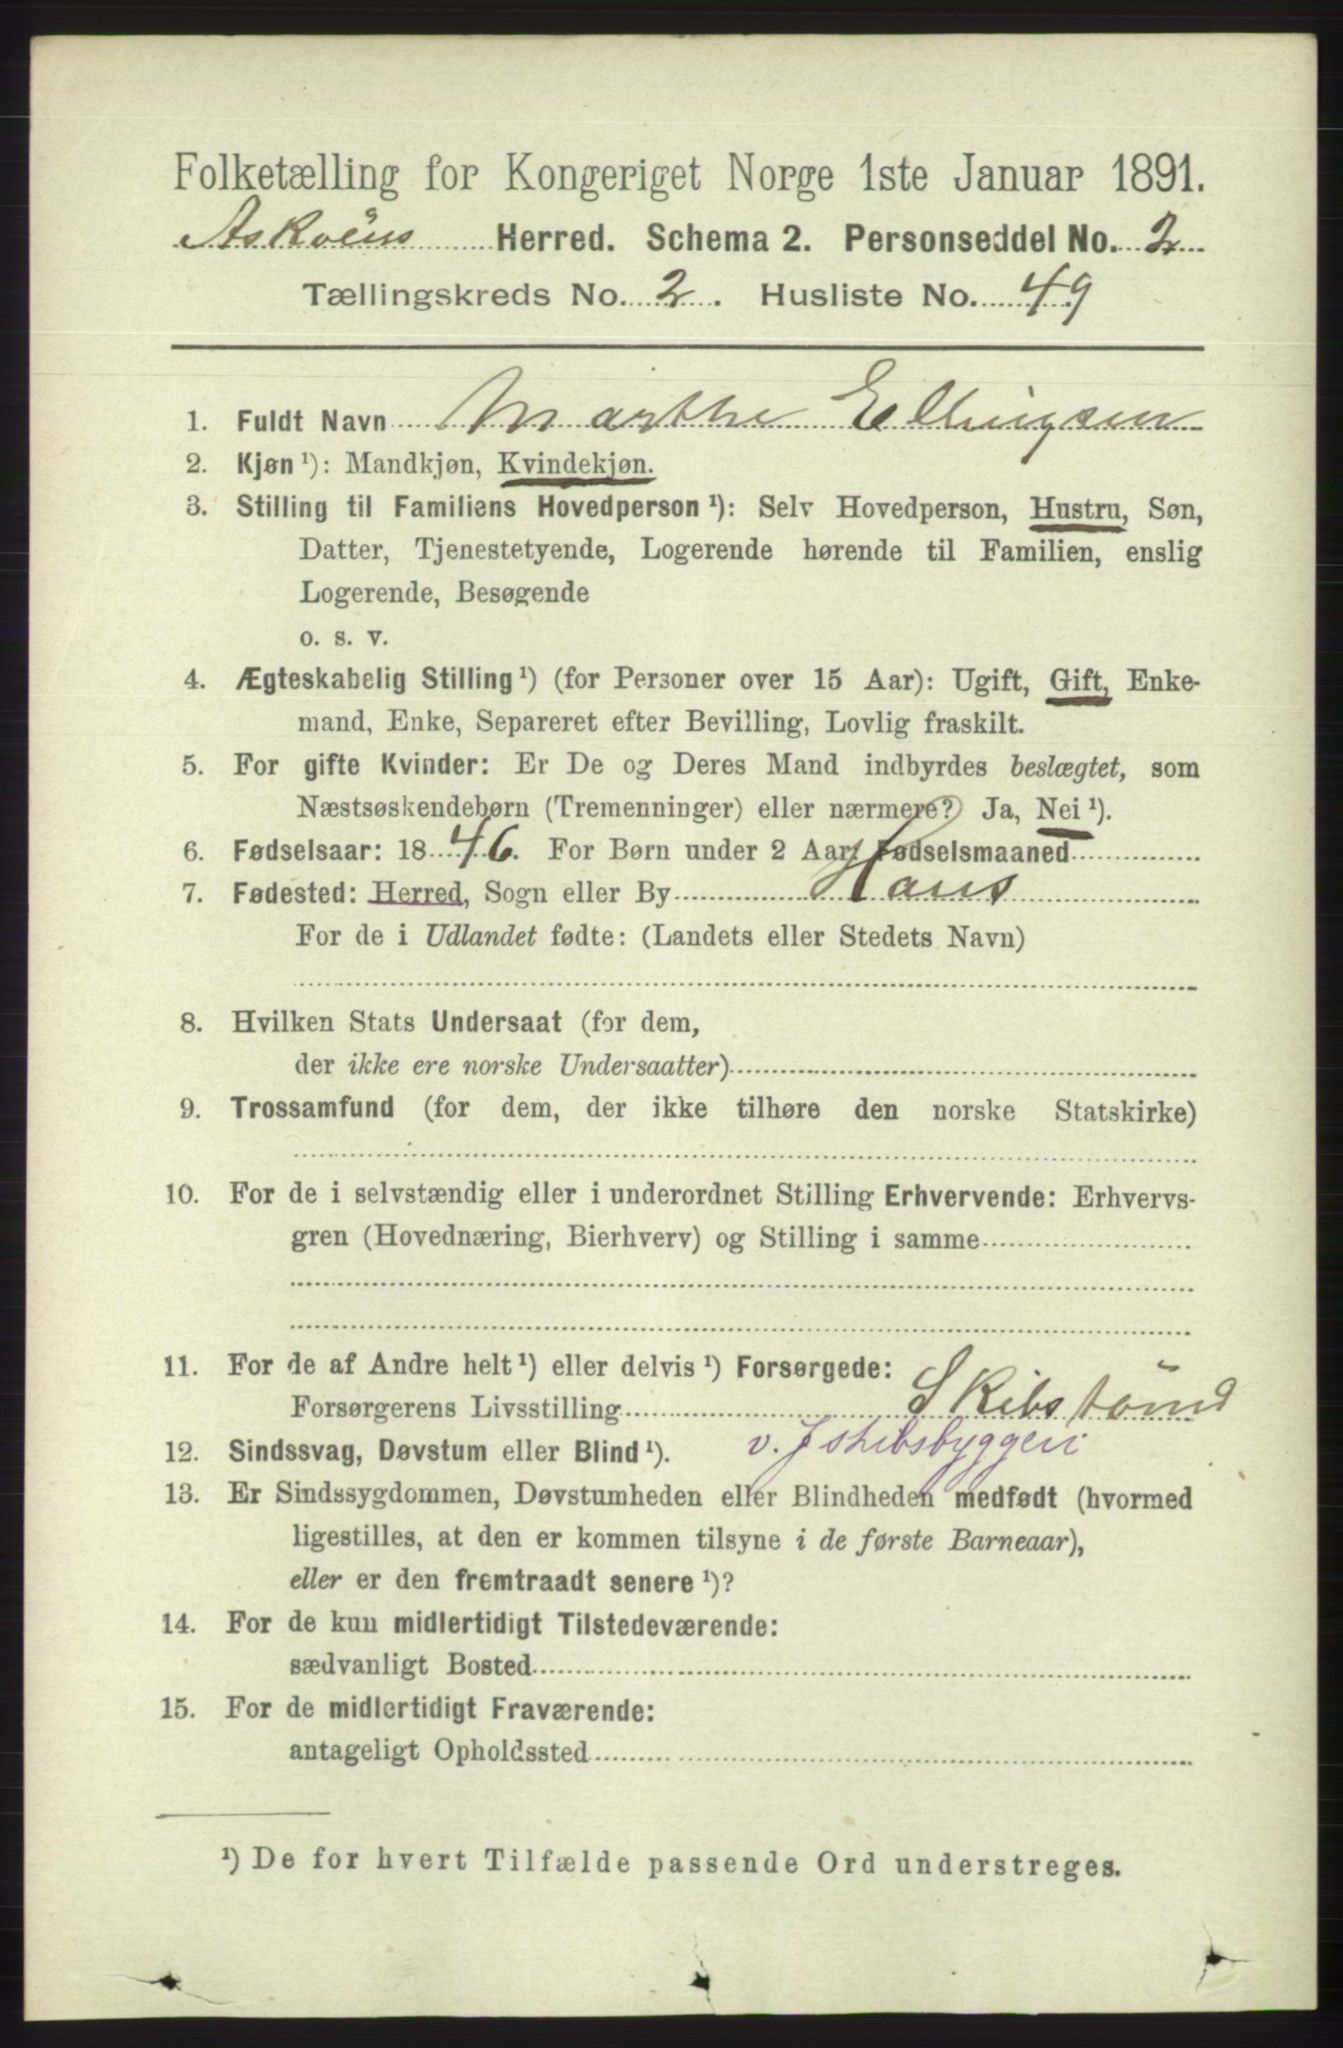 Folketælling for Kongeriget Norge 1ste Januar 1891.
Askøens Herred. Schema 2. Personseddel No. 2
Tællingskreds No. 2. Husliste No. 49
1. Fuldt Navn Marthe Ellingsen
2. Kjøn ¹): Mandkjøn, Kvindekjøn.
3. Stilling til Familiens Hovedperson ¹): Selv Hovedperson, Hustru, Søn,
Datter, Tjenestetyende, Logerende hørende til Familien, enslig
Logerende, Besøgende
o. s. v.
4. Ægteskabelig Stilling ¹) (for Personer over 15 Aar): Ugift, Gift, Enke-
mand, Enke, Separeret efter Bevilling, Lovlig fraskilt.
5. For gifte Kvinder: Er De og Deres Mand indbyrdes beslægtet, som
Næstsøskendebørn (Tremenninger) eller nærmere? Ja, Nei ¹).
6. Fødselsaar: 1846. For Børn under 2 Aar, Fødselsmaaned
7. Fødested: Herred, Sogn eller By Haus
For de i Udlandet fødte: (Landets eller Stedets Navn)
8. Hvilken Stats Undersaat (for dem,
der ikke ere norske Undersaatter)
9. Trossamfund (for dem, der ikke tilhøre den norske Statskirke)
10. For de i selvstændig eller i underordnet Stilling Erhvervende: Erhvervs-
gren (Hovednæring, Bierhverv) og Stilling i samme
11. For de af Andre helt ¹) eller delvis ¹) Forsørgede:
Forsørgerens Livsstilling Skibstömd
12. Sindssvag, Døvstum eller Blind ¹). v. skibsbyggeri
13. Er Sindssygdommen, Døvstumheden eller Blindheden medfødt (hvormed
ligestilles, at den er kommen tilsyne i de første Barneaar),
eller er den fremtraadt senere ¹)?
14. For de kun midlertidigt Tilstedeværende:
sædvanligt Bosted
15. For de midlertidigt Fraværende:
antageligt Opholdssted
¹) De for hvert Tilfælde passende Ord understreges.